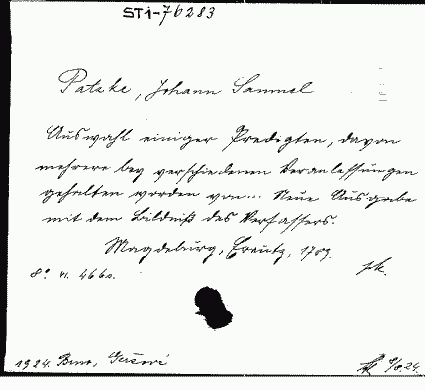 ST1-76283
Patzke, Johann Samuel
Auswahl einiger Predigten, davon
mehrere bey verschiedenen Veranlassungen
gehalten worden von... Neue Ausgabe
mit dem Bildniß des Verfassers.
Magdeburg, Creutz, 1789.
8° 466s.
1924. Brno,